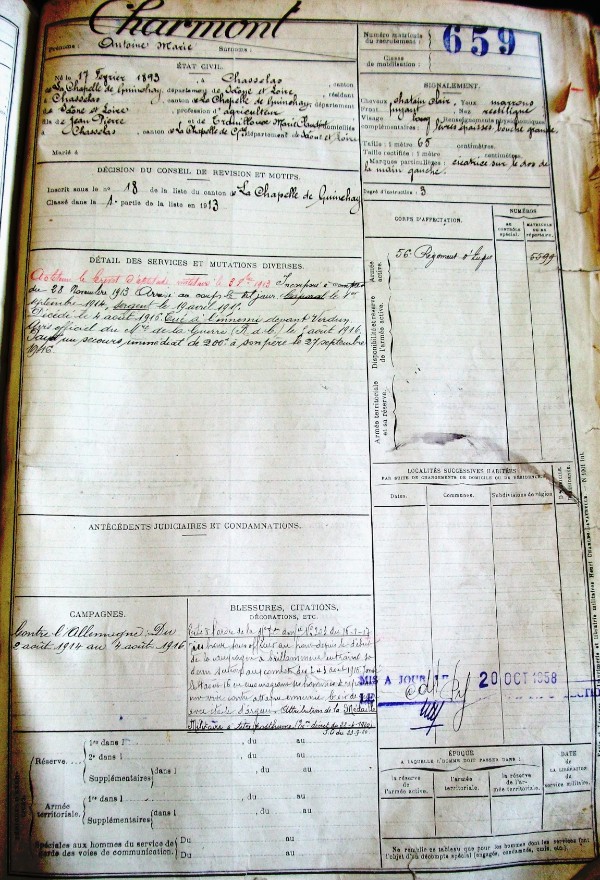 Charmont
Prénoms : Antoine Marie Surnoms :
Numéro matricule du recrutement : 659
Classe de mobilisation :
ÉTAT CIVIL.
Né le 17 février 1893, à Chasselas, canton
de La Chapelle de Guinchay, département de Saône et Loire, résidant
à Chasselas, canton de La Chapelle de Guinchay, département
de Saône et Loire, profession d'agriculteur
fils de Jean Pierre et de Marie domiciliés
à Chasselas, canton de La Chapelle de département de Saône et Loire
Marié à
SIGNALEMENT.
Cheveux chatain clair. Yeux marrons
Front fuyant Nez rectiligne
Visage long Renseignements physionomiques
complémentaires : lèvres épaisses bouche grande
Taille : 1 mètre 65 centimètres.
Taille rectifiée : 1 mètre centimètres.
Marques particulières : cicatrice sur le dos de
la main gauche.
Degré d'instruction : 3
DÉCISION DU CONSEIL DE REVISION ET MOTIFS.
Inscrit sous le no 18 de la liste du canton de La Chapelle de Guinchay
Classé dans la 1e partie de la liste en 1913
CORPS D'AFFECTATION.
NUMÉROS
au contrôle spécial.
matricule ou au répertoire.
Armée active.
56e Régiment d'Inf
5599
Disponibilité et réserve de l'armée active.
Armée territoriale et sa réserve.
DÉTAIL DES SERVICES ET MUTATIONS DIVERSES.
le Brevet d'aptitude militaire le 1913 Incorporé à compter
du 28 Novembre 1913 Arrivé au corps le dit jour. Caporal le
septembre 1914, Sergent le 19 avril 191
Décédé le 4 août 1916 tué à l'ennemi devant Verdun
Avis officiel du Mre de la Guerre août 1916
Payé un secours immédiat de 200f à son père le 27 septembre
1916
LOCALITÉS SUCCESSIVES HABITÉES
PAR SUITE DE CHANGEMENTS DE DOMICILE OU DE RÉSIDENCE.
Dates. Communes. Subdivisions de région.
ANTÉCÉDENTS JUDICIAIRES ET CONDAMNATIONS.
CAMPAGNES.
Contre l'Allemagne Du
2 août 1914 au 4 août 1916
BLESSURES, CITATIONS,
DÉCORATIONS, ETC.
Cité à l'ordre de la
brave sous officier au front depuis le début
de la campagne a brillamment entraîné sa
demi section aux combats du 2 et 3 août 1916
en encourageant ses hommes à
une vive contre attaque ennemie.
Attribution de la Médaille
Militaire à titre posthume
MIS A JOUR LE 20 OCT 1958
Réserve.
1re dans l , du au
2e dans l , du au
Supplémentaires dans l , du au
Armée territoriale.
1re dans l , du au
Supplémentaires dans l , du au
Spéciales aux hommes du service de
garde des voies de communication. Du au
Du au
ÉPOQUE
A LAQUELLE L'HOMME DOIT PASSER DANS :
la réserve de l'armée active.
l'armée territoriale.
la réserve de l'armée territoriale.
DATE
DE LA LIBÉRATION
du service militaire.
Ne remplir ce tableau que pour les hommes dont les services font
l'objet d'un décompte spécial (engagés, condamnés, omis, etc.).